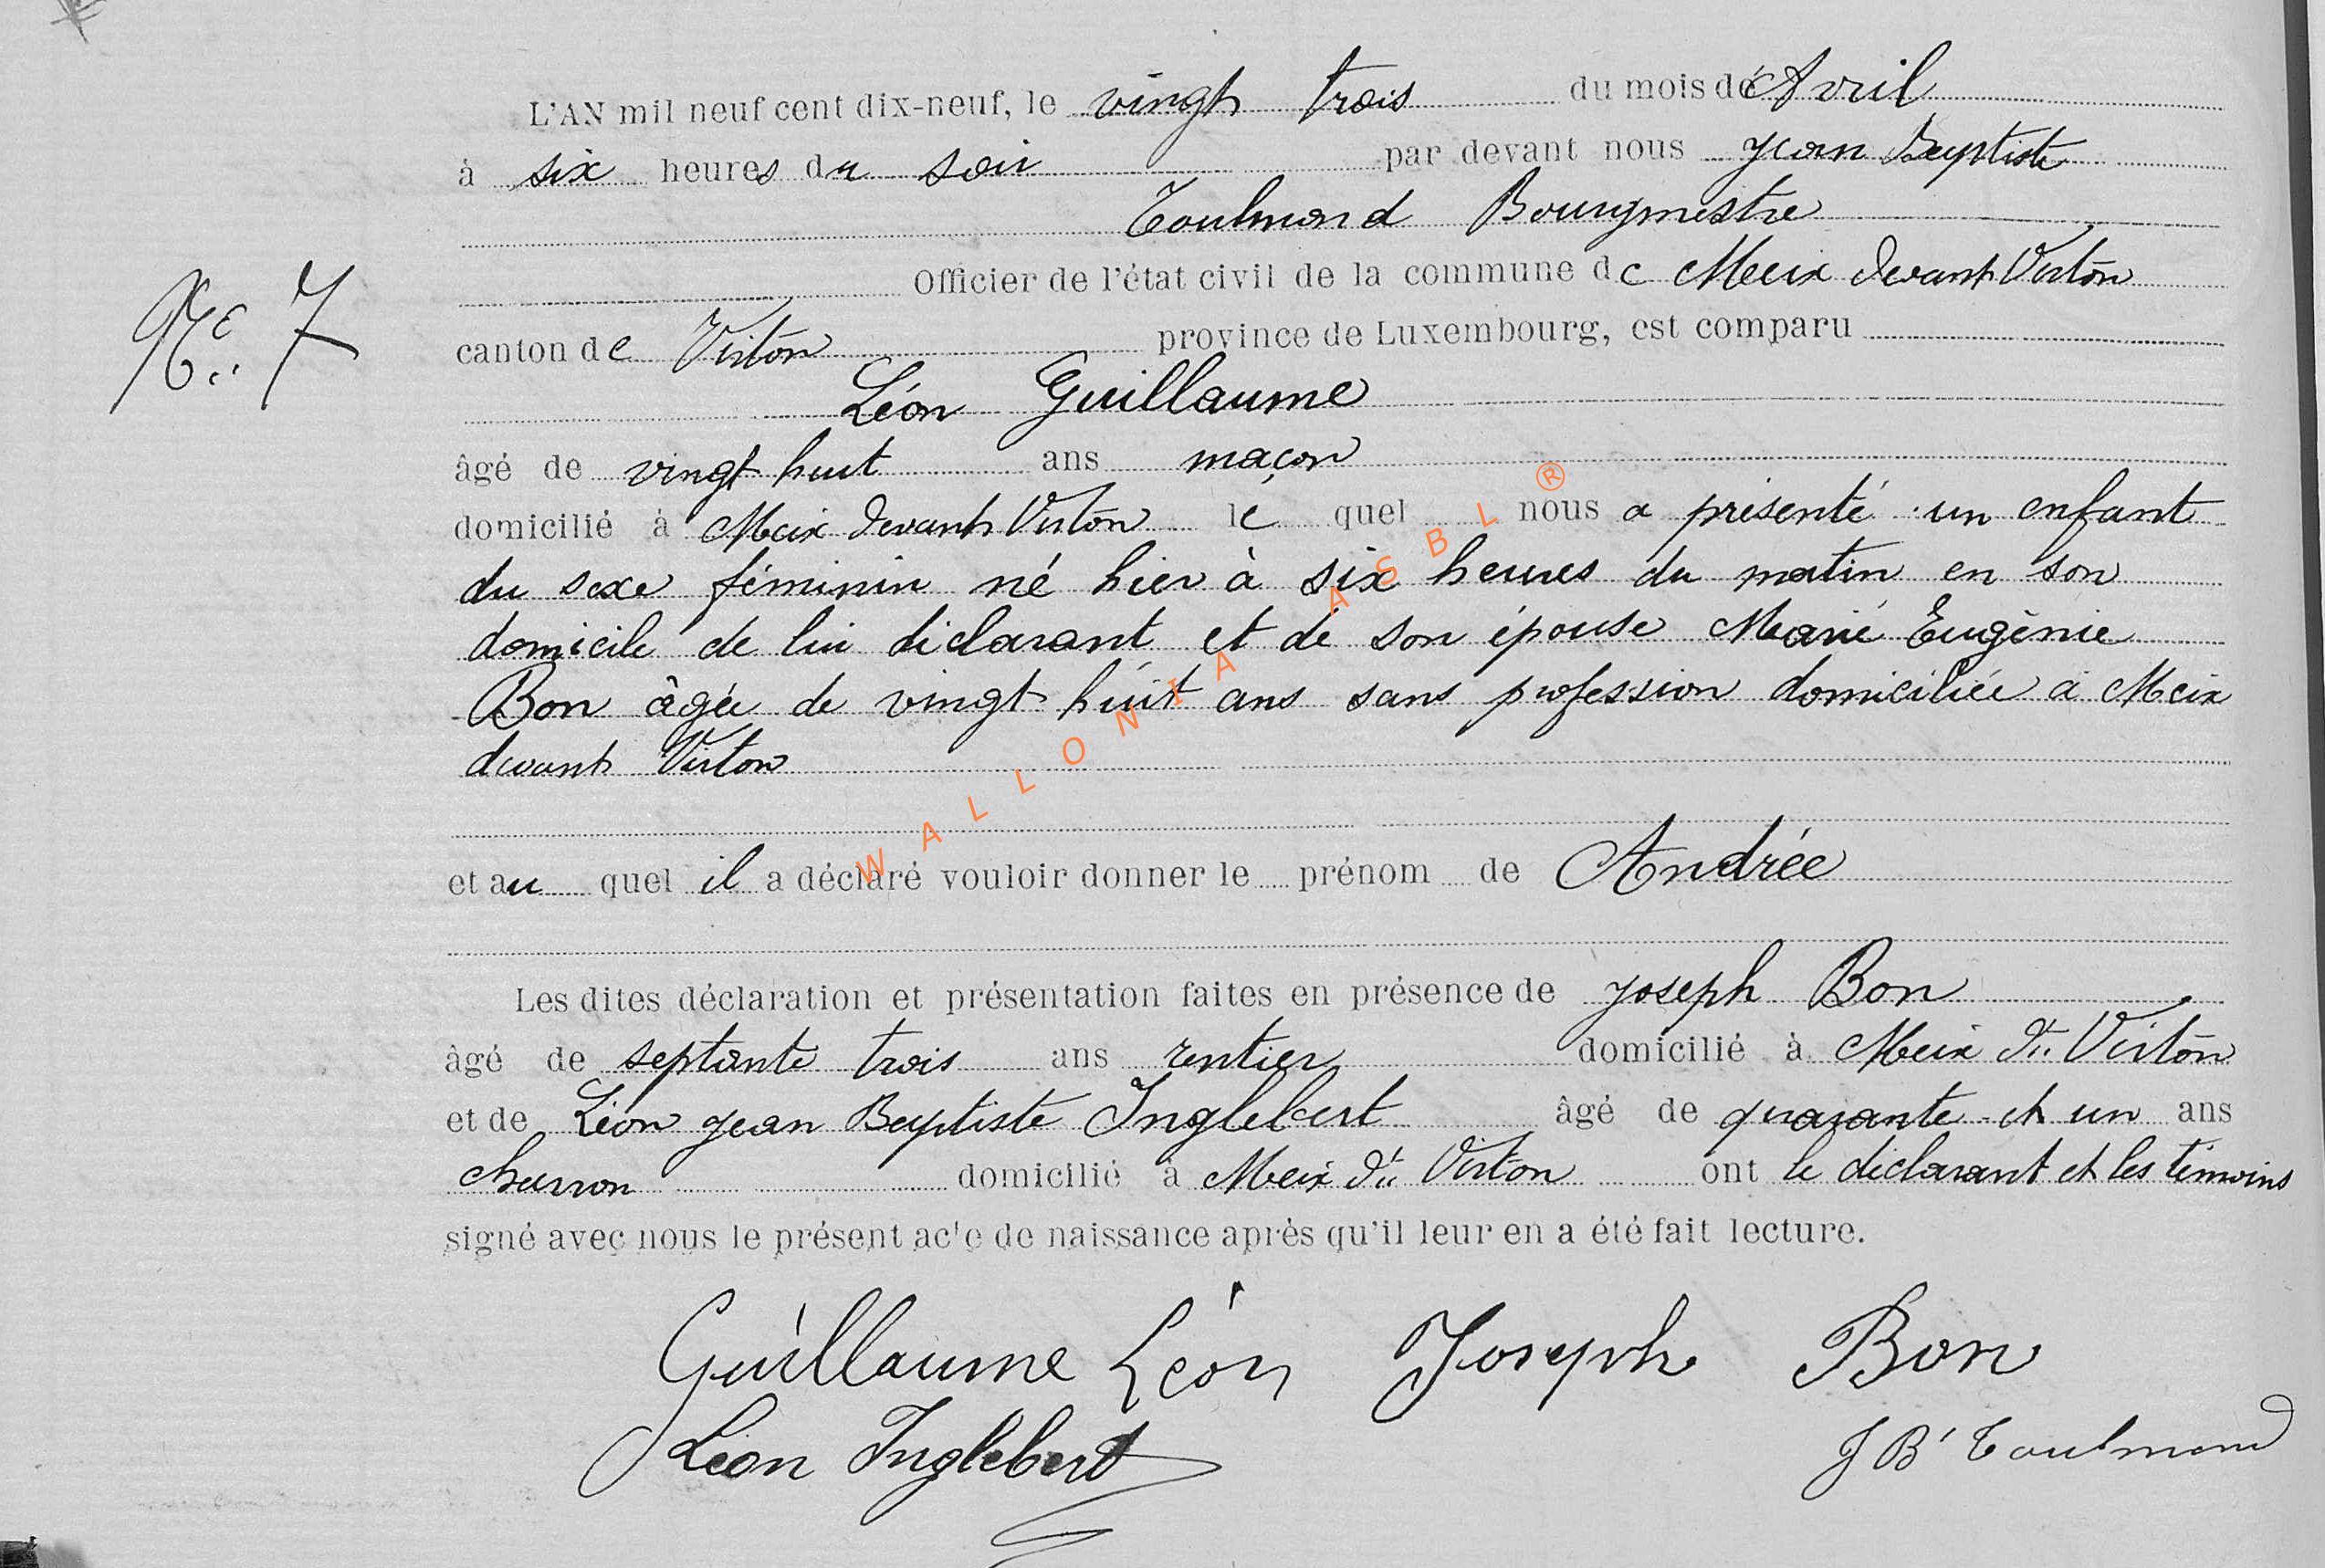 L'AN mil neuf cent dix-neuf, le vingt trois du mois d'Avril
à six heures du soir par devant nous Jean Baptiste
Toulmond Bourgmestre
Officier de l'état civil de la commune de Meix devant Virton
N° 7
canton de Virton province de Luxembourg, est comparu
Léon Guillaume
âgé de vingt huit ans maçon
domicilié à Meix devant Virton le quel nous a présenté un enfant
du sexe féminin né hier à six heures du matin en son
domicile de lui déclarant et de son épouse Marie Eugènie
Bon âgée de vingt huit ans sans profession domiciliée à Meix
devant Virton
WALLONIA ASBL ®
et au quel il a déclaré vouloir donner le prénom de Andrée
Les dites déclaration et présentation faites en présence de Joseph Bon
âgé de septante trois ans rentier domicilié à Meix dt Virton
et de Léon Jean Baptiste Inglebert âgé de quarante et un ans
charron domicilié à Meix dt Virton ont le déclarant et les témoins
signé avec nous le présent acte de naissance après qu'il leur en a été fait lecture.
Guillaume Léon Joseph Bon
Léon Inglebert JBt Toulmond